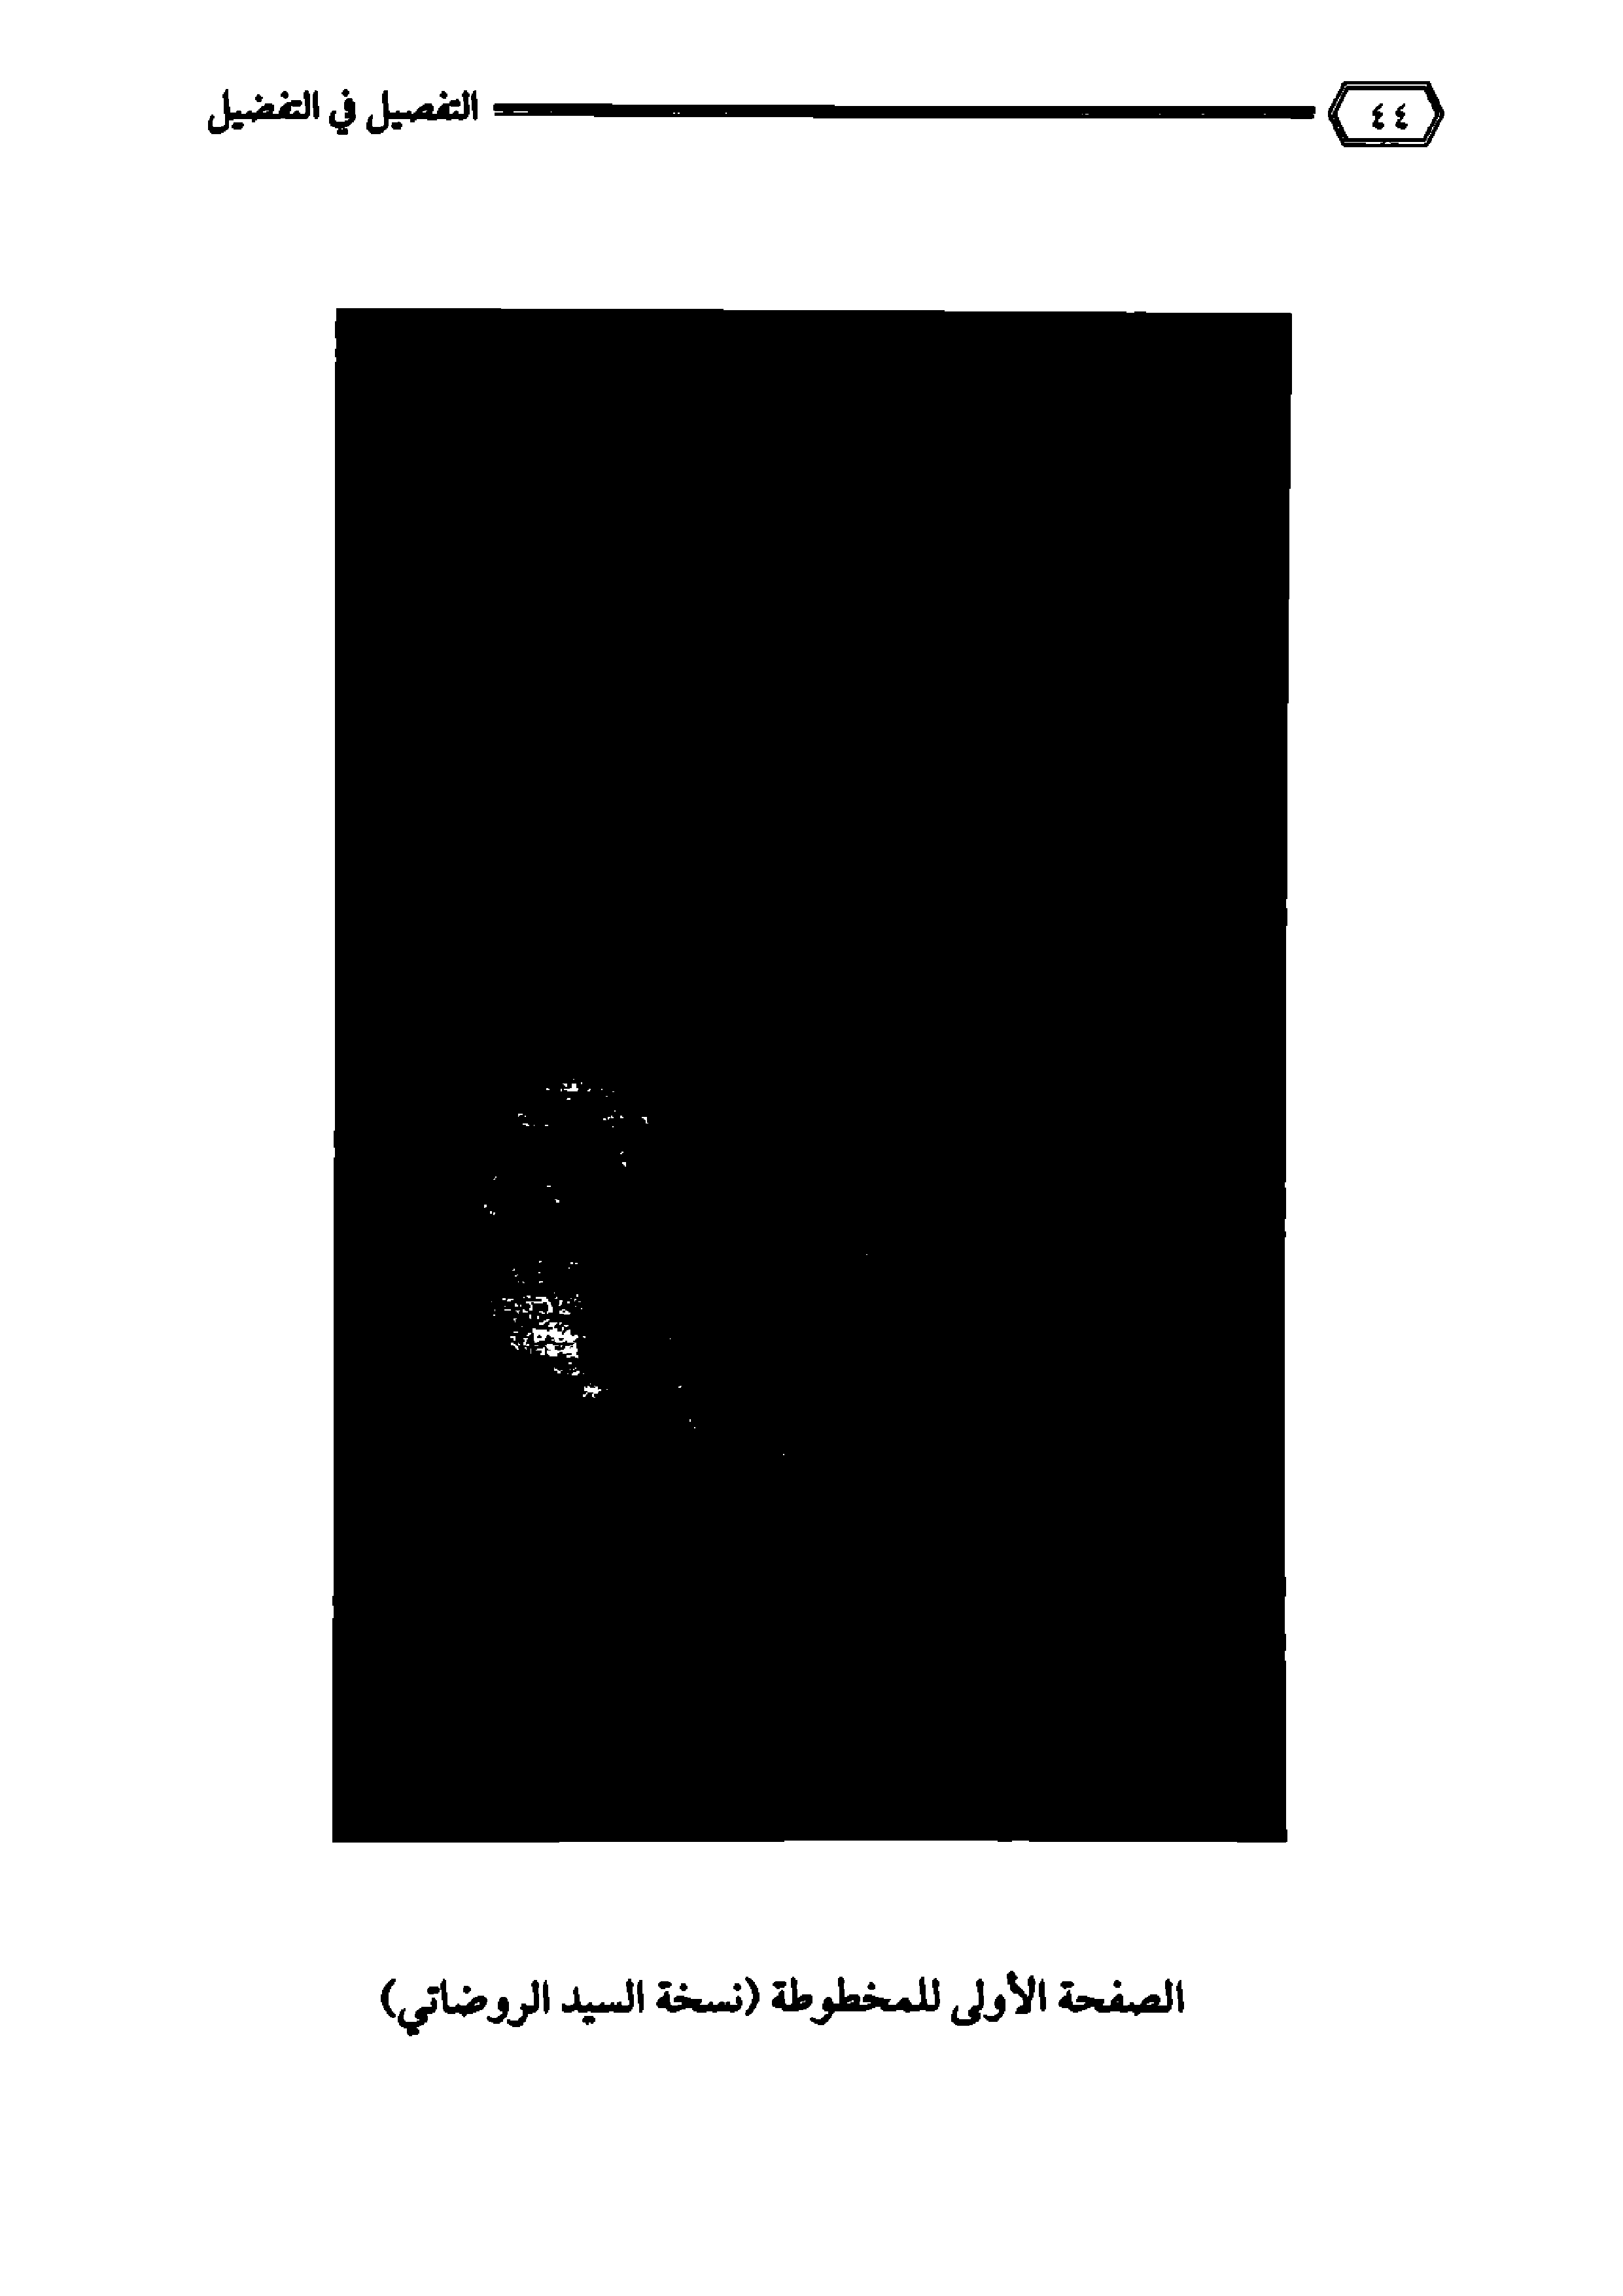 ٤٤ التفصيل في التفضيل
الصفحة الأولى للمخطوطة (نسخة السيد الروضاتي)